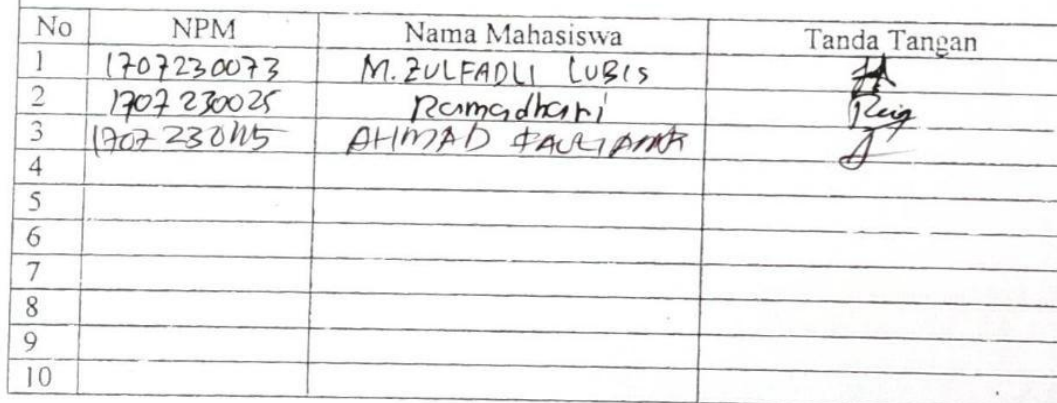 No NPM Nama Mahasiswa Tanda Tangan
1 1707230073 M. ZULFADLI LUBIS
2 1707230025 Ramadhani
3 AHMAD
4
5
6
7
8
9
10